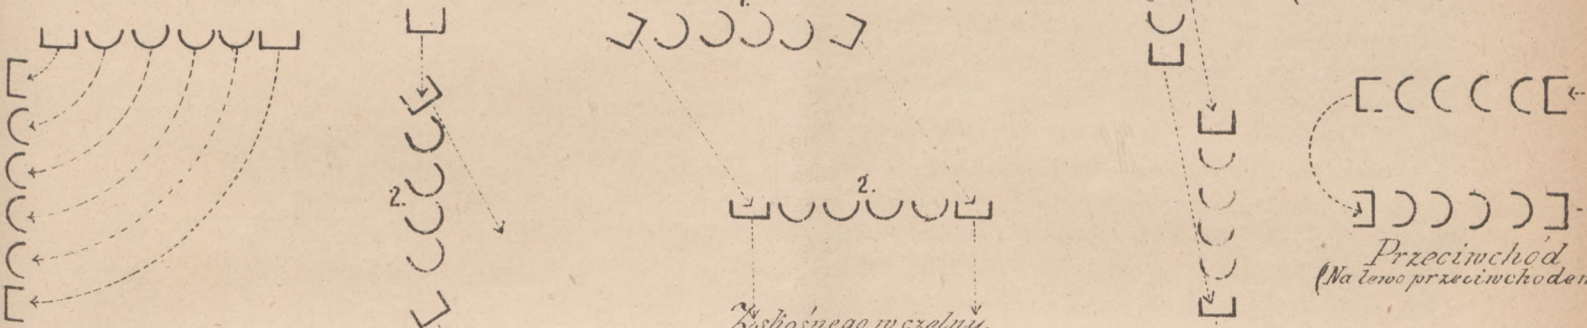 2.
2.
Z skośnego w czelny.
Przeciwchód
(Na lewo przeciwchodem